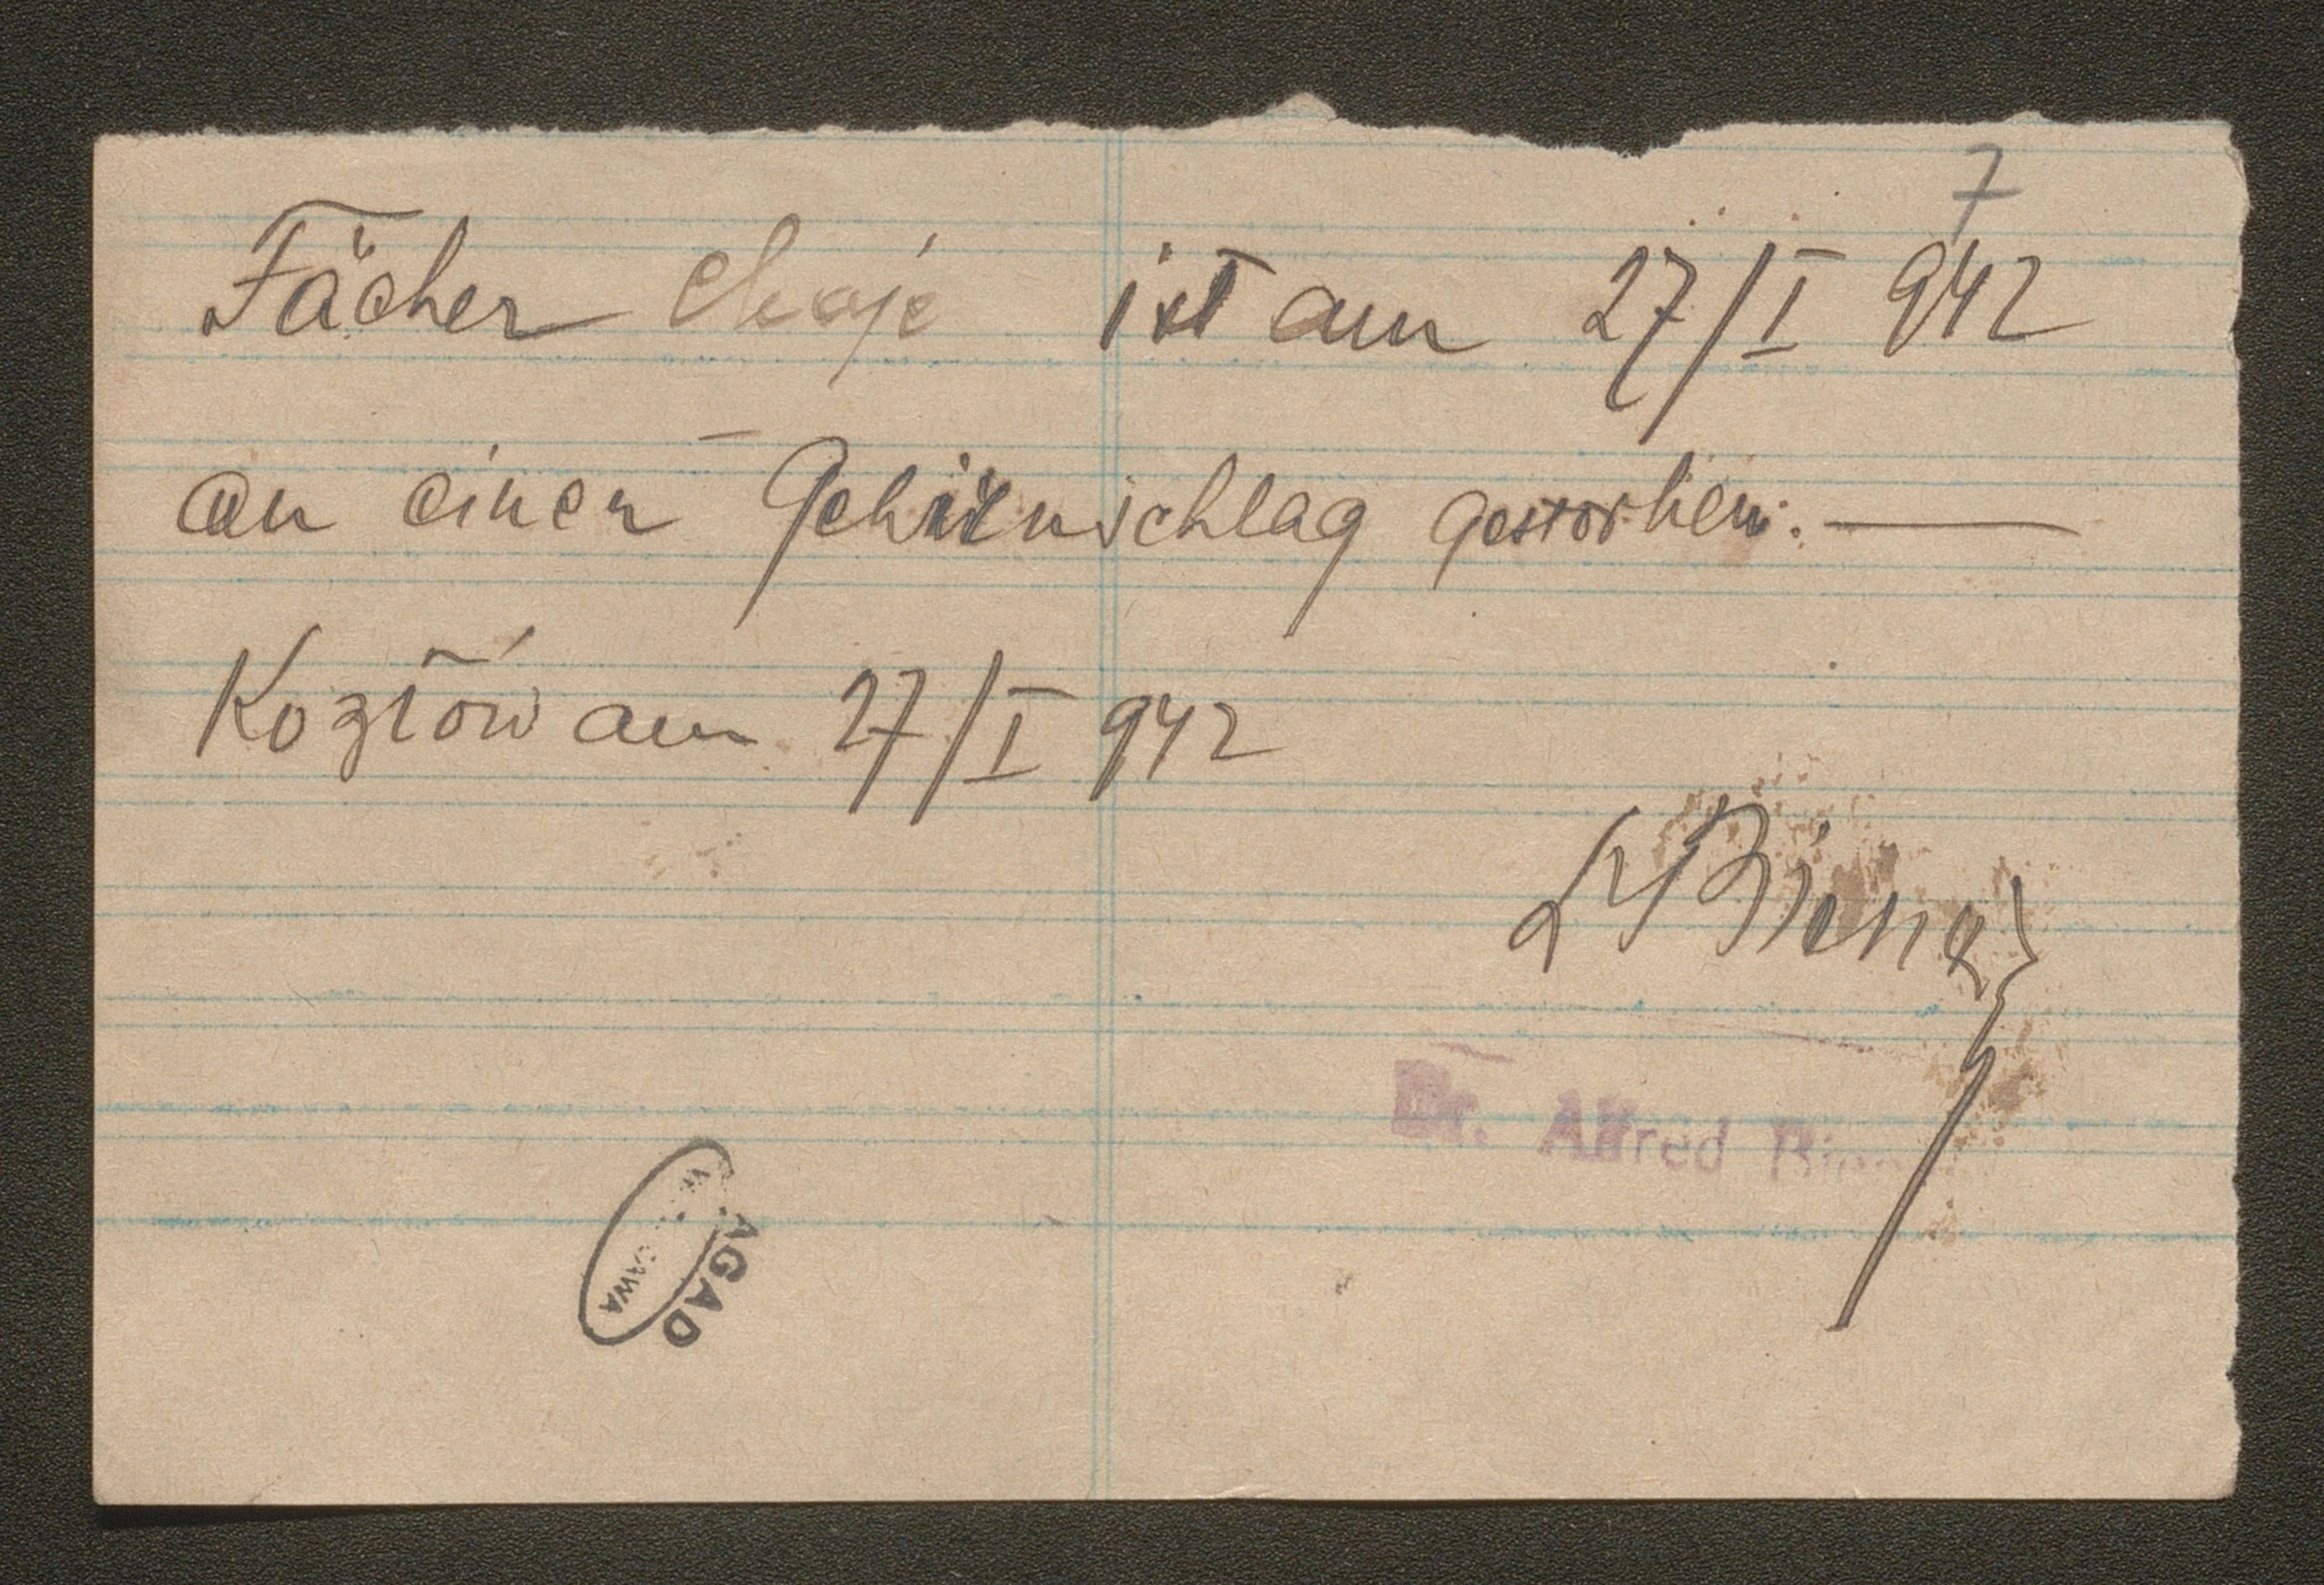 7
Fächer Chaje ist am 27/I 942
an einen Gehirnschlag gestorben. —
Kozłów am 27/I 942
Dr. Alfred
AGAD